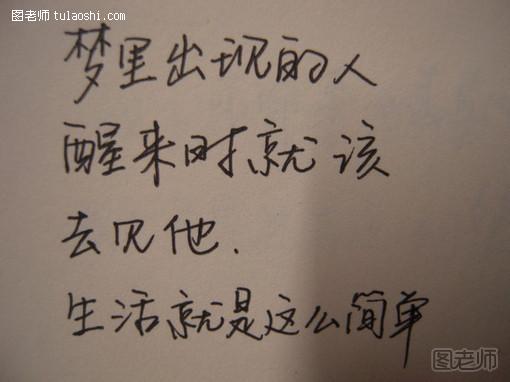 图老师 tulaoshi.com
梦里出现的人
醒来时就该
去见他.
生活就是这么简单
图老师